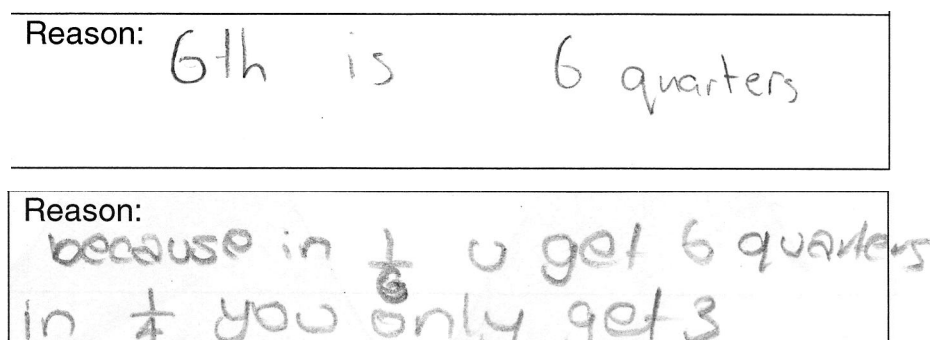 Reason:
6th is 6 quarters
Reason:
because in 1/6 u get 6 quarters
in 1/4 you only get 3